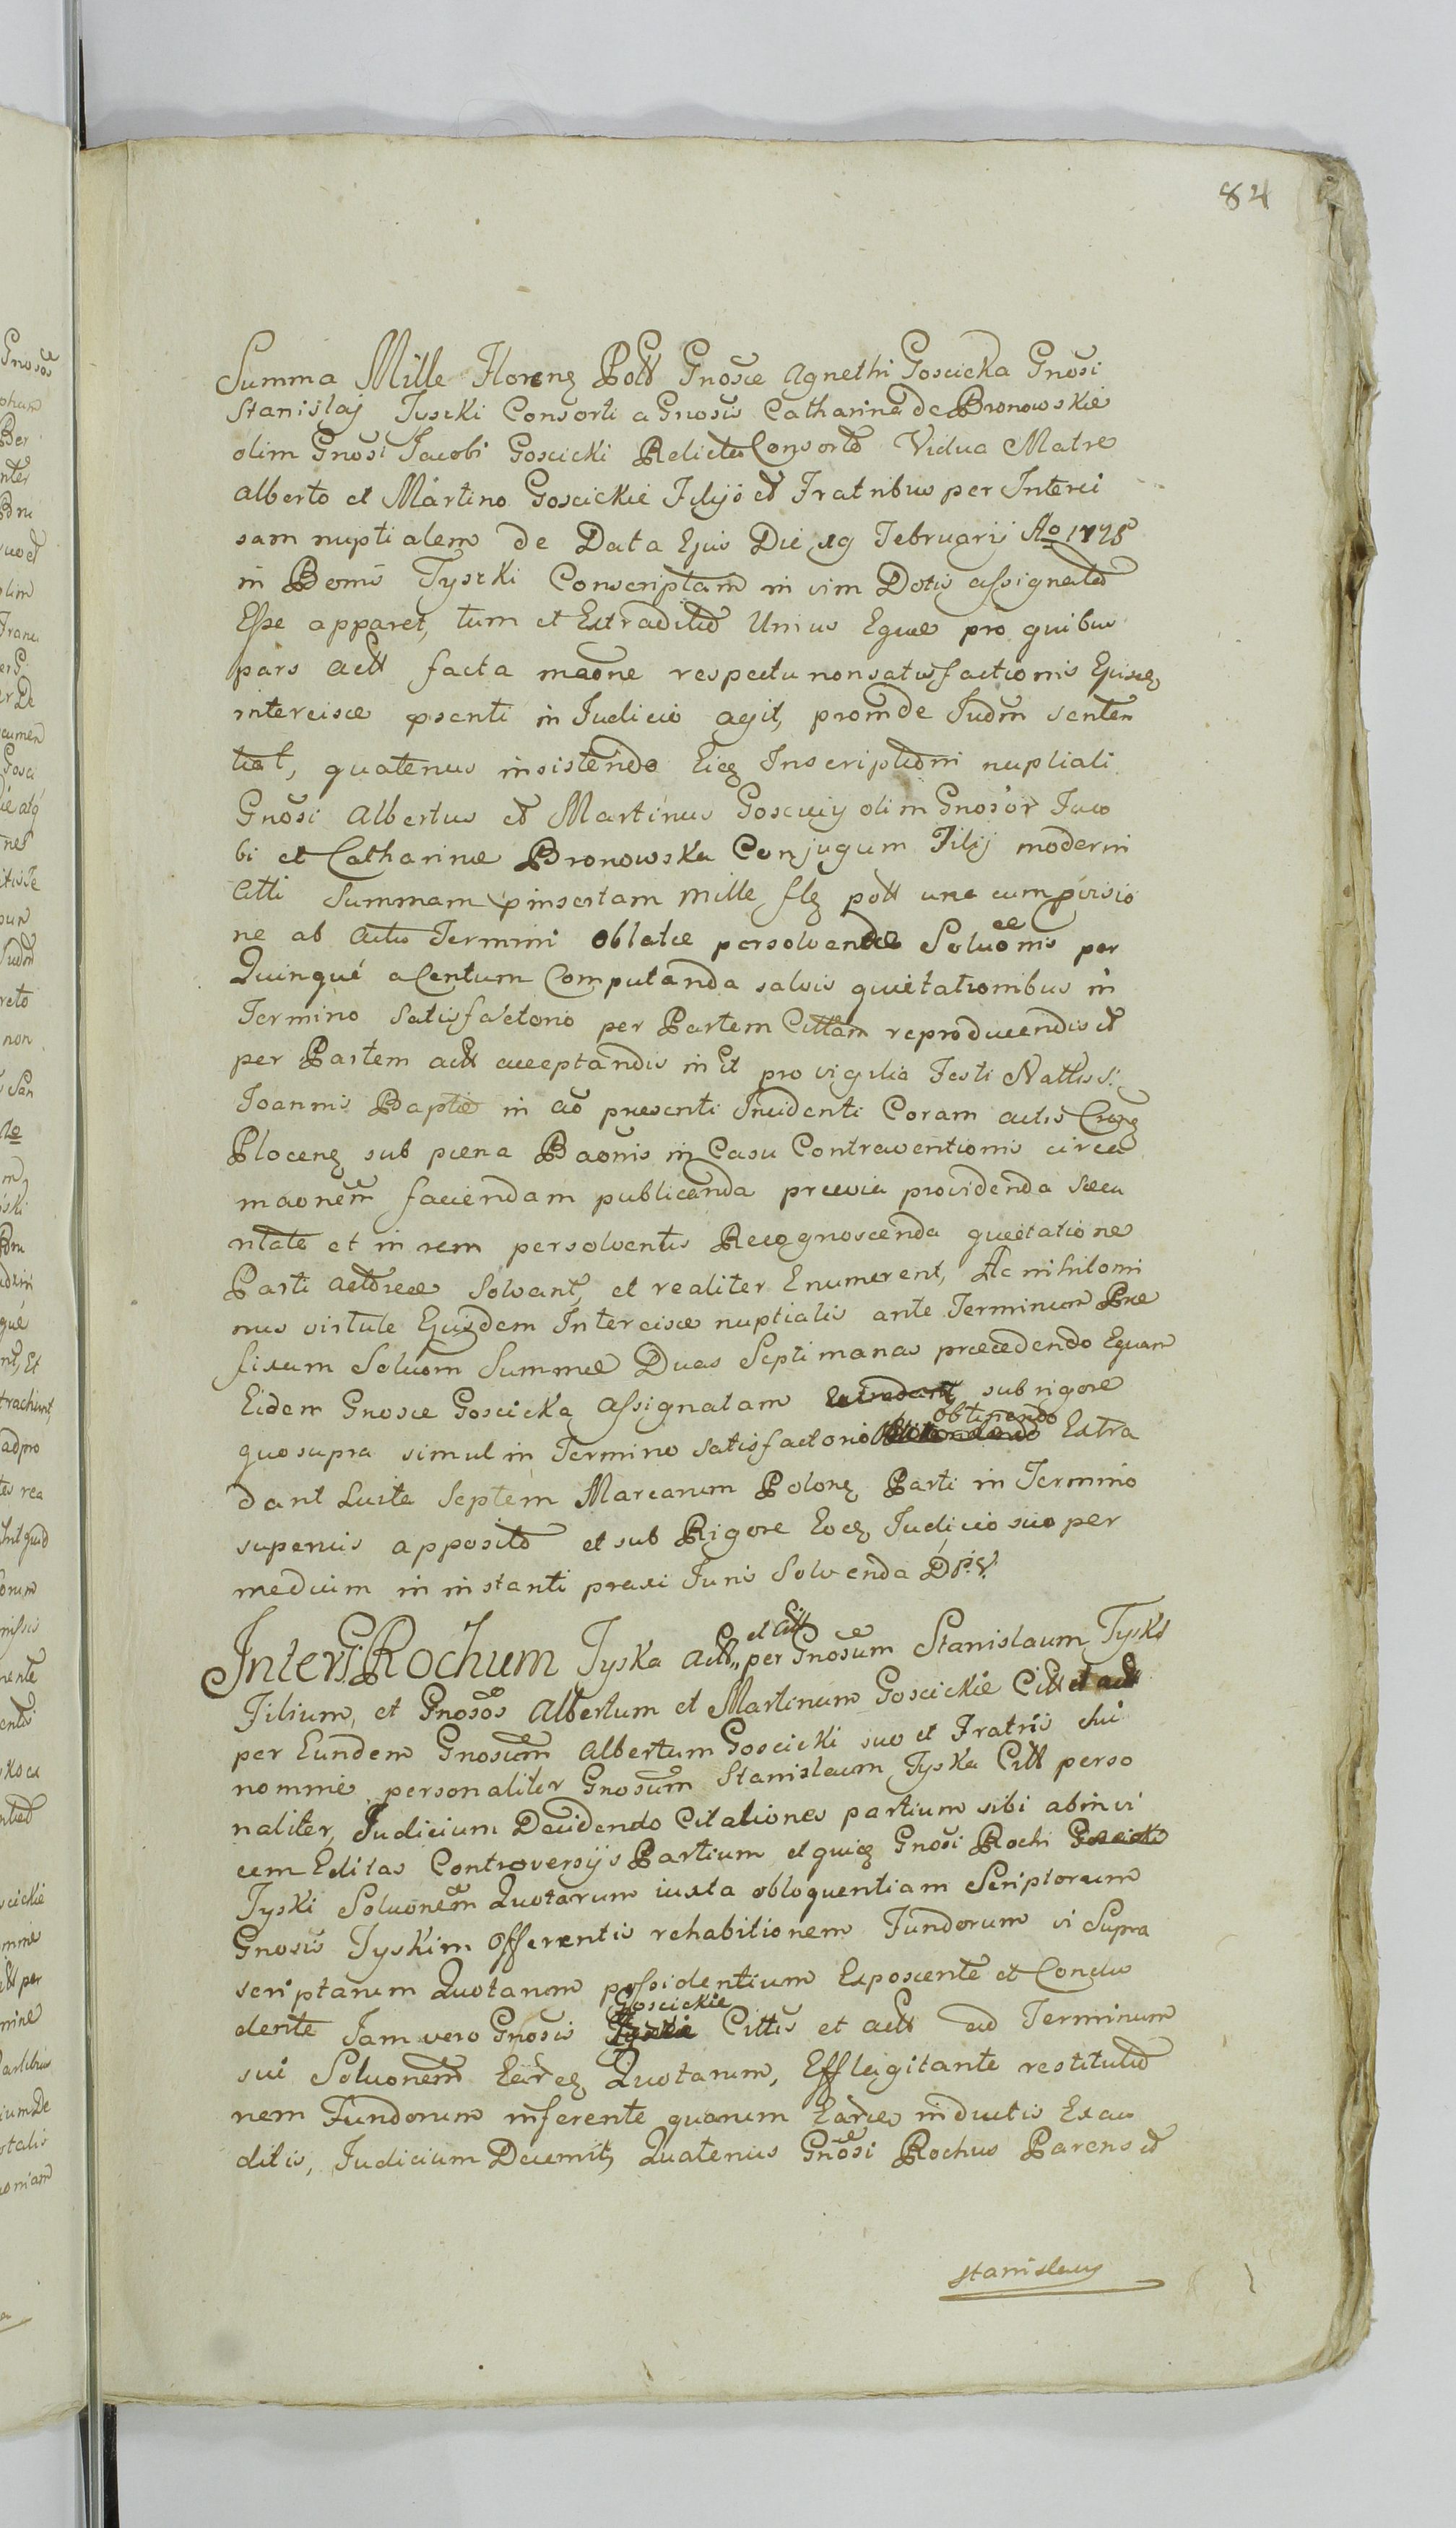 84
Summa Mille Florenz Poll Gnosæ Agnethi Goscicka Gnosi
Stanislaj Tyski Consorti a Gnosis Catharina de Bronowskie
olim Gnosi Jacobi Goscicki Relicta Consorte Vidua Matre
Alberto et Martino Goscickie Filijs et Fratribus per Interci
sam nuptialem de Data Ejus Die 19 Februarij Ao
in Bonis Tyski Conscriptam in vim Dotis assignata
Esse apparet, tum et Extraditio Unius Equæ pro quibus
pars actt facta maone respectu non satisfactionis Ejusq
intercisæ psenti in Judicio agit, proinde Judm senten
tiat, quatenus insistendo Eicz Inscriptioni nuptiali
Gnosi Albertus et Martinus Goscicy olim Gnosor Jaco
bi et Catharinæ Bronowska Conjugum Filij moderni
Citti Summam pinsertam mille flz poll una cum pvisio
ne ab Actu Termini oblatæ persolvendæ Soluonis per
Quinque a Centum Computanda salvis quietationibus in
Termino Satisfactorio per Partem Cittam reproducendis et
per Partem actt acceptandis in et pro vigilia Festi Nattis S.
Joannis Baptæ in ao præsenti Incidenti Coram actis
Plocenz sub pæna Baonis in Casu Contraventionis circa
maonem faciendam publicanda prævia providenda secu
ritate et in rem persolventis Recognoscenda quietatione
Parti actoreæ Solvant, et realiter Enumerent, Ac nihilomi
nus virtute Ejusdem Intercisæ nuptialis ante Terminum Præ
fixum Soluom Summæ Duas Septimanas præcedendo Equam
Eidem Gnosæ Goscicka assignatam Extradant sub rigore
quo supra simul in Termino satisfactorio obtinendo Extra
dant Luita Septem Marcarum Polonz Parti in Termino
superius apposito et sub Rigore Eocz Judicio suo per
medium in instanti praxi Juris Solvenda
Inter G. Rochum Tyska actt et citt per Gnosum Stanislaum Tyski
Filium, et Gnosos Albertum et Martinum Goscickie Citt et actt
per Eundem Gnosum Albertum Goscicki suo et Fratris sui
nomine personaliter Gnosum Stanislaum Tyska Citt perso
naliter, Judicium Decidendo Citationes partium sibi abinvi
cem Editas Controversijs Partium et quicz Gnosi Rochi Goscicki
Tyski Soluonem Quotarum iuxta obloquentiam Scriptorum
Gnosis Tyskim Offerentis rehabitionem Fundorum vi Supra
scriptarum Quotarum possidentium Exposcente et Conclu
dente Jam vero Gnosis Goscickie Cittis et actt ad Terminum
sui Soluonem Earcz Quotarum, Efflagitante restitutio
nem Fundorum inferente quarum Earcz inductis Exau
ditis, Judicium Decernit, Quatenus Gnosi Rochus Parens et
Stanislaus